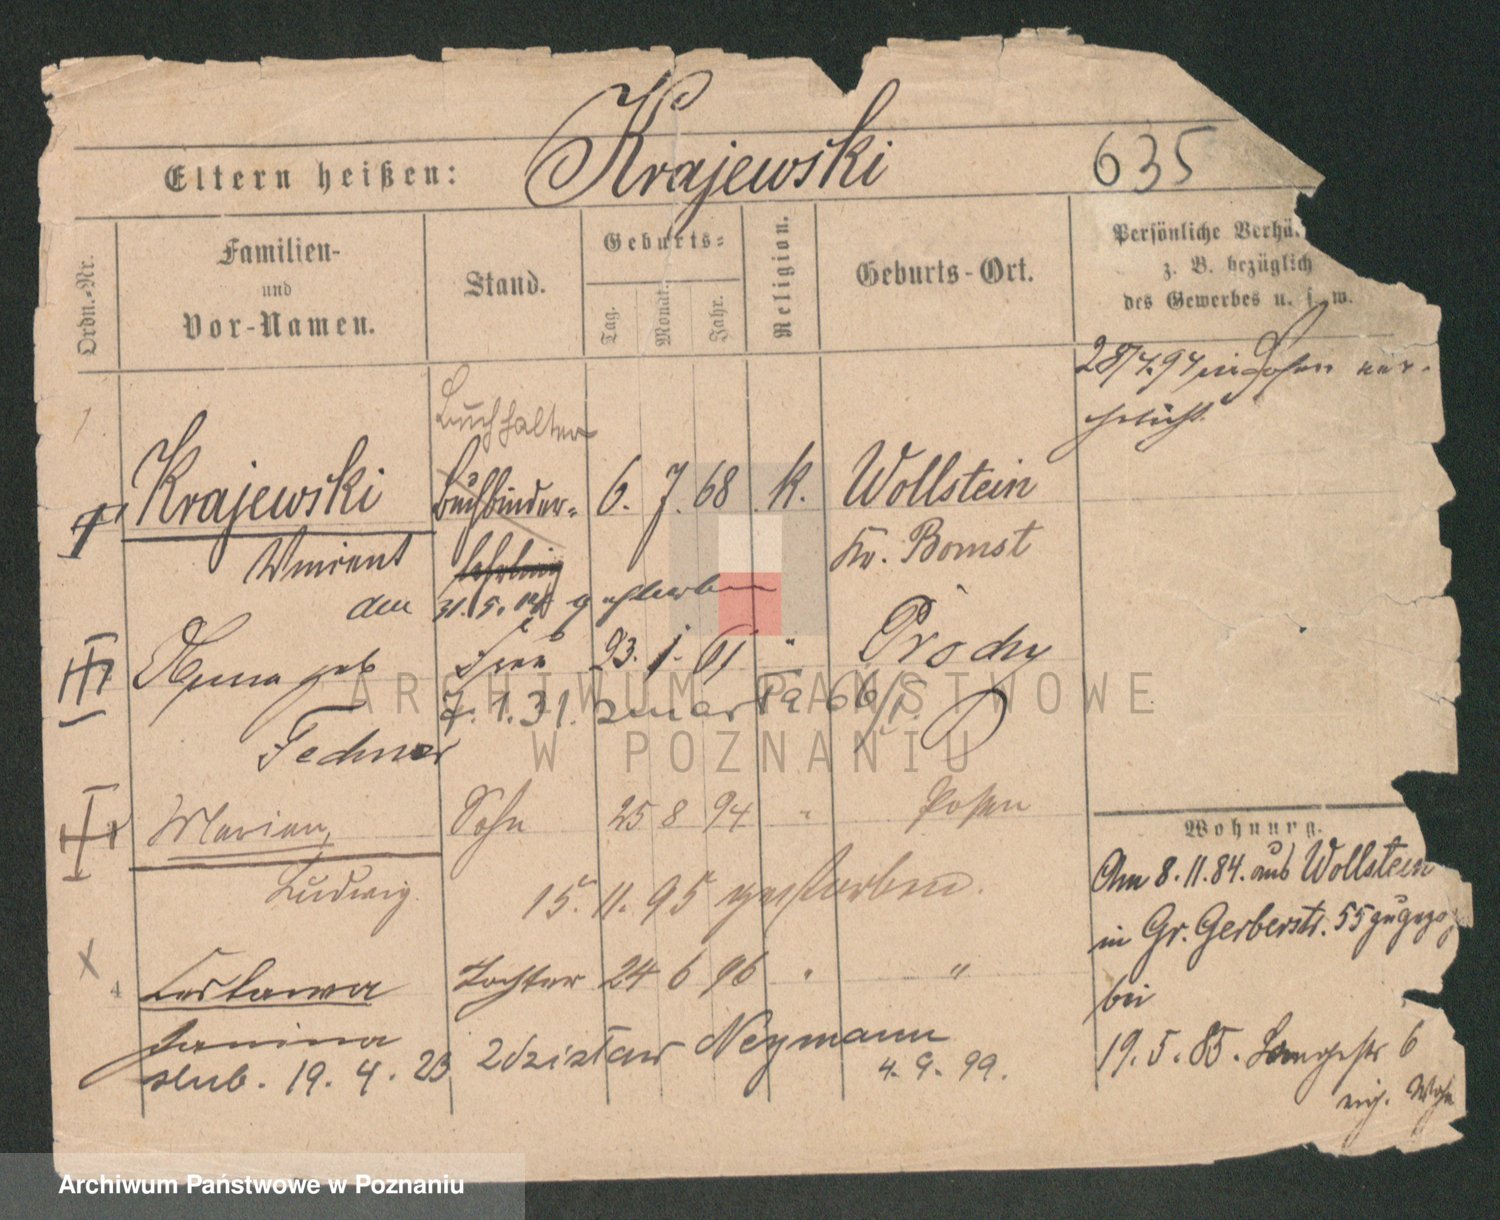 Krajewski
Eltern heißen:
635
Ordn.-Nr.
Familien-
und
Vor-Namen.
Stand.
Geburts-
Tag.
Monat.
Jahr.
Religion.
Geburts-Ort.
Persönliche Verhä
z. B. bezüglich
des Gewerbes u. s. w.
28/7.94 in Posen ver-
ehelicht
1
Buchhalter
Krajewski Buchbinder- 6. 7. 68 k. Wollstein
Vincent lehrling Kr. Bomst
den 31. 5. gestorben
Anna geb Frau 23. 1. 61 " Prochy
7. 1. 31.
Fechner
Marian, Sohn 25 8 94 " Posen
Ludwig. 15. 11. 95 gestorben.
4 Lestawa Tochter 24 6 96 " "
Janina
slub. 19. 4. 23 Zdzisław Neymann
4. 9. 99.
Wohnung.
Am 8. 11. 84. aus Wollstein
in Gr. Gerberstr. 55 zugezo
bei
19. 5. 85. Langestr 6
eig. Wohn
ARCHIWUM PAŃSTWOWE
W POZNANIU
Archiwum Państwowe w Poznaniu